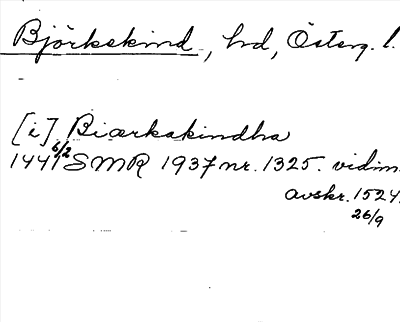 Björkekind, hd, Österg. l.
[i] Biærkakindha
1441 6/2 SMR 1937 nr. 1325. vidim.
avskr. 1524
26/9